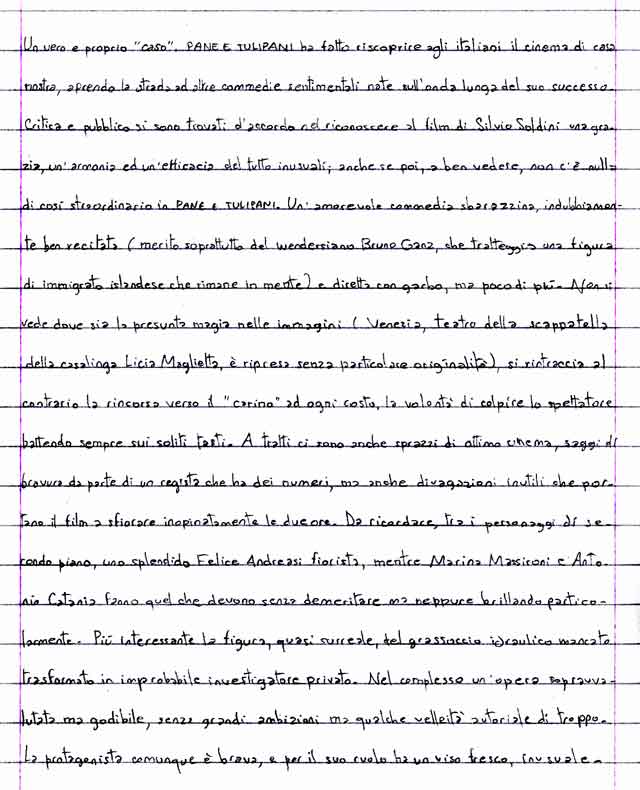 Un vero e proprio "caso". PANE E TULIPANI ha fatto riscoprire agli italiani il cinema di casa
nostra, aprendo la strada ad altre commedie sentimentali nate sull'onda lunga del suo successo.
Critica e pubblico si sono trovati d'accordo nel riconoscere al film di Silvio Soldini una gra-
zia, un'armonia ed un'efficacia del tutto inusuali; anche se poi, a ben vedere, non c'è nulla
di così straordinario in PANE E TULIPANI. Un'amorevole commedia sbarazzina, indubbiamen-
te ben recitata (merito soprattutto del wendersiano Bruno Ganz, che tratteggia una figura
di immigrato islandese che rimane in mente) e diretta con garbo, ma poco di più. Non si
vede dove sia la presunta magia nelle immagini (Venezia, teatro della scappatella
della casalinga Licia Maglietta, è ripresa senza particolare originalità), si rintraccia al
contrario la rincorsa verso il "carino" ad ogni costo, la volontà di colpire lo spettatore
battendo sempre sui soliti tasti. A tratti ci sono anche sprazzi di ottimo cinema, saggi di
bravura da parte di un regista che ha dei numeri, ma anche divagazioni inutili che por-
tano il film a sfiorare inopinatamente le due ore. Da ricordare, tra i personaggi di se-
condo piano, uno splendido Felice Andreasi fiorista, mentre Marina Massironi e Anto-
nio Catania fanno quel che devono senza demeritare ma neppure brillando partico-
larmente. Più interessante la figura, quasi surreale, del grassoccio idraulico mancato
trasformato in improbabile investigatore privato. Nel complesso un'opera sopravva-
lutata ma godibile, senza grandi ambizioni ma qualche velleità autoriale di troppo.
La protagonista comunque è brava, e per il suo ruolo ha un viso fresco, inusuale.